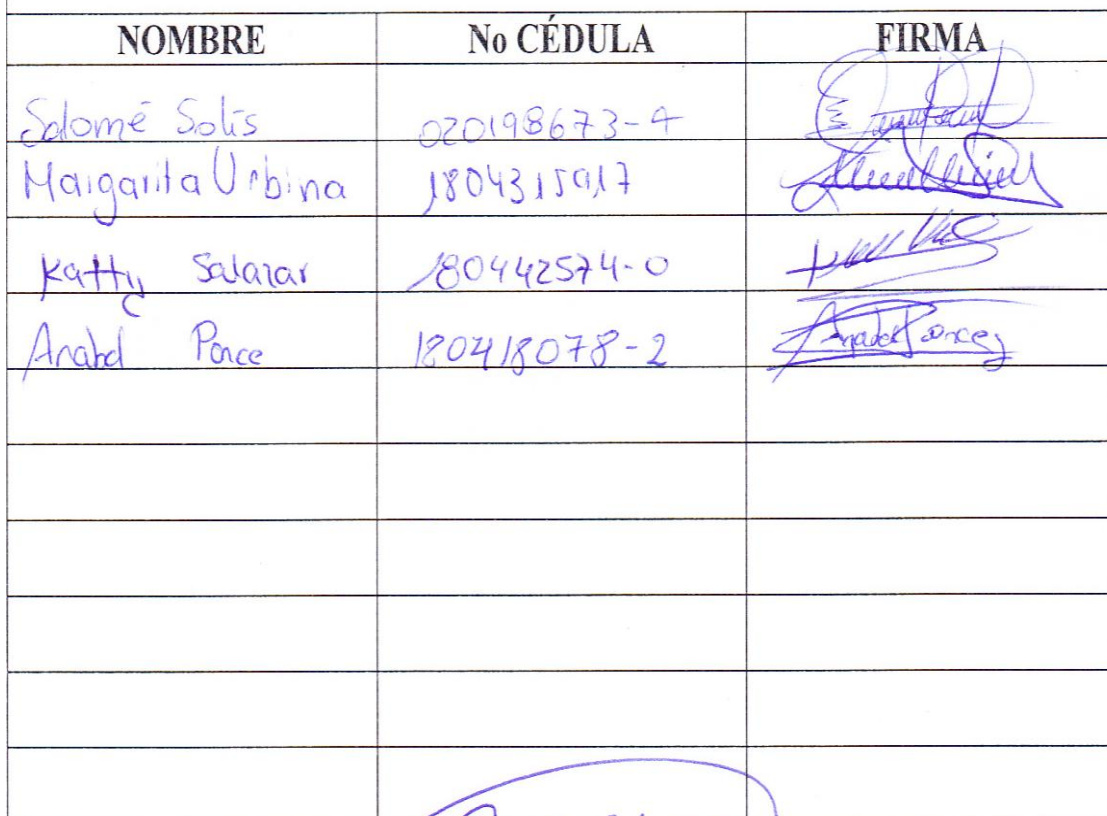 NOMBRE No CÉDULA FIRMA
Salomé Solis 020198673-4
Margarita Urbina 1804315917
Katty Salazar 180442574-0
Anabel Ponce 180418078-2 Anabel Ponce